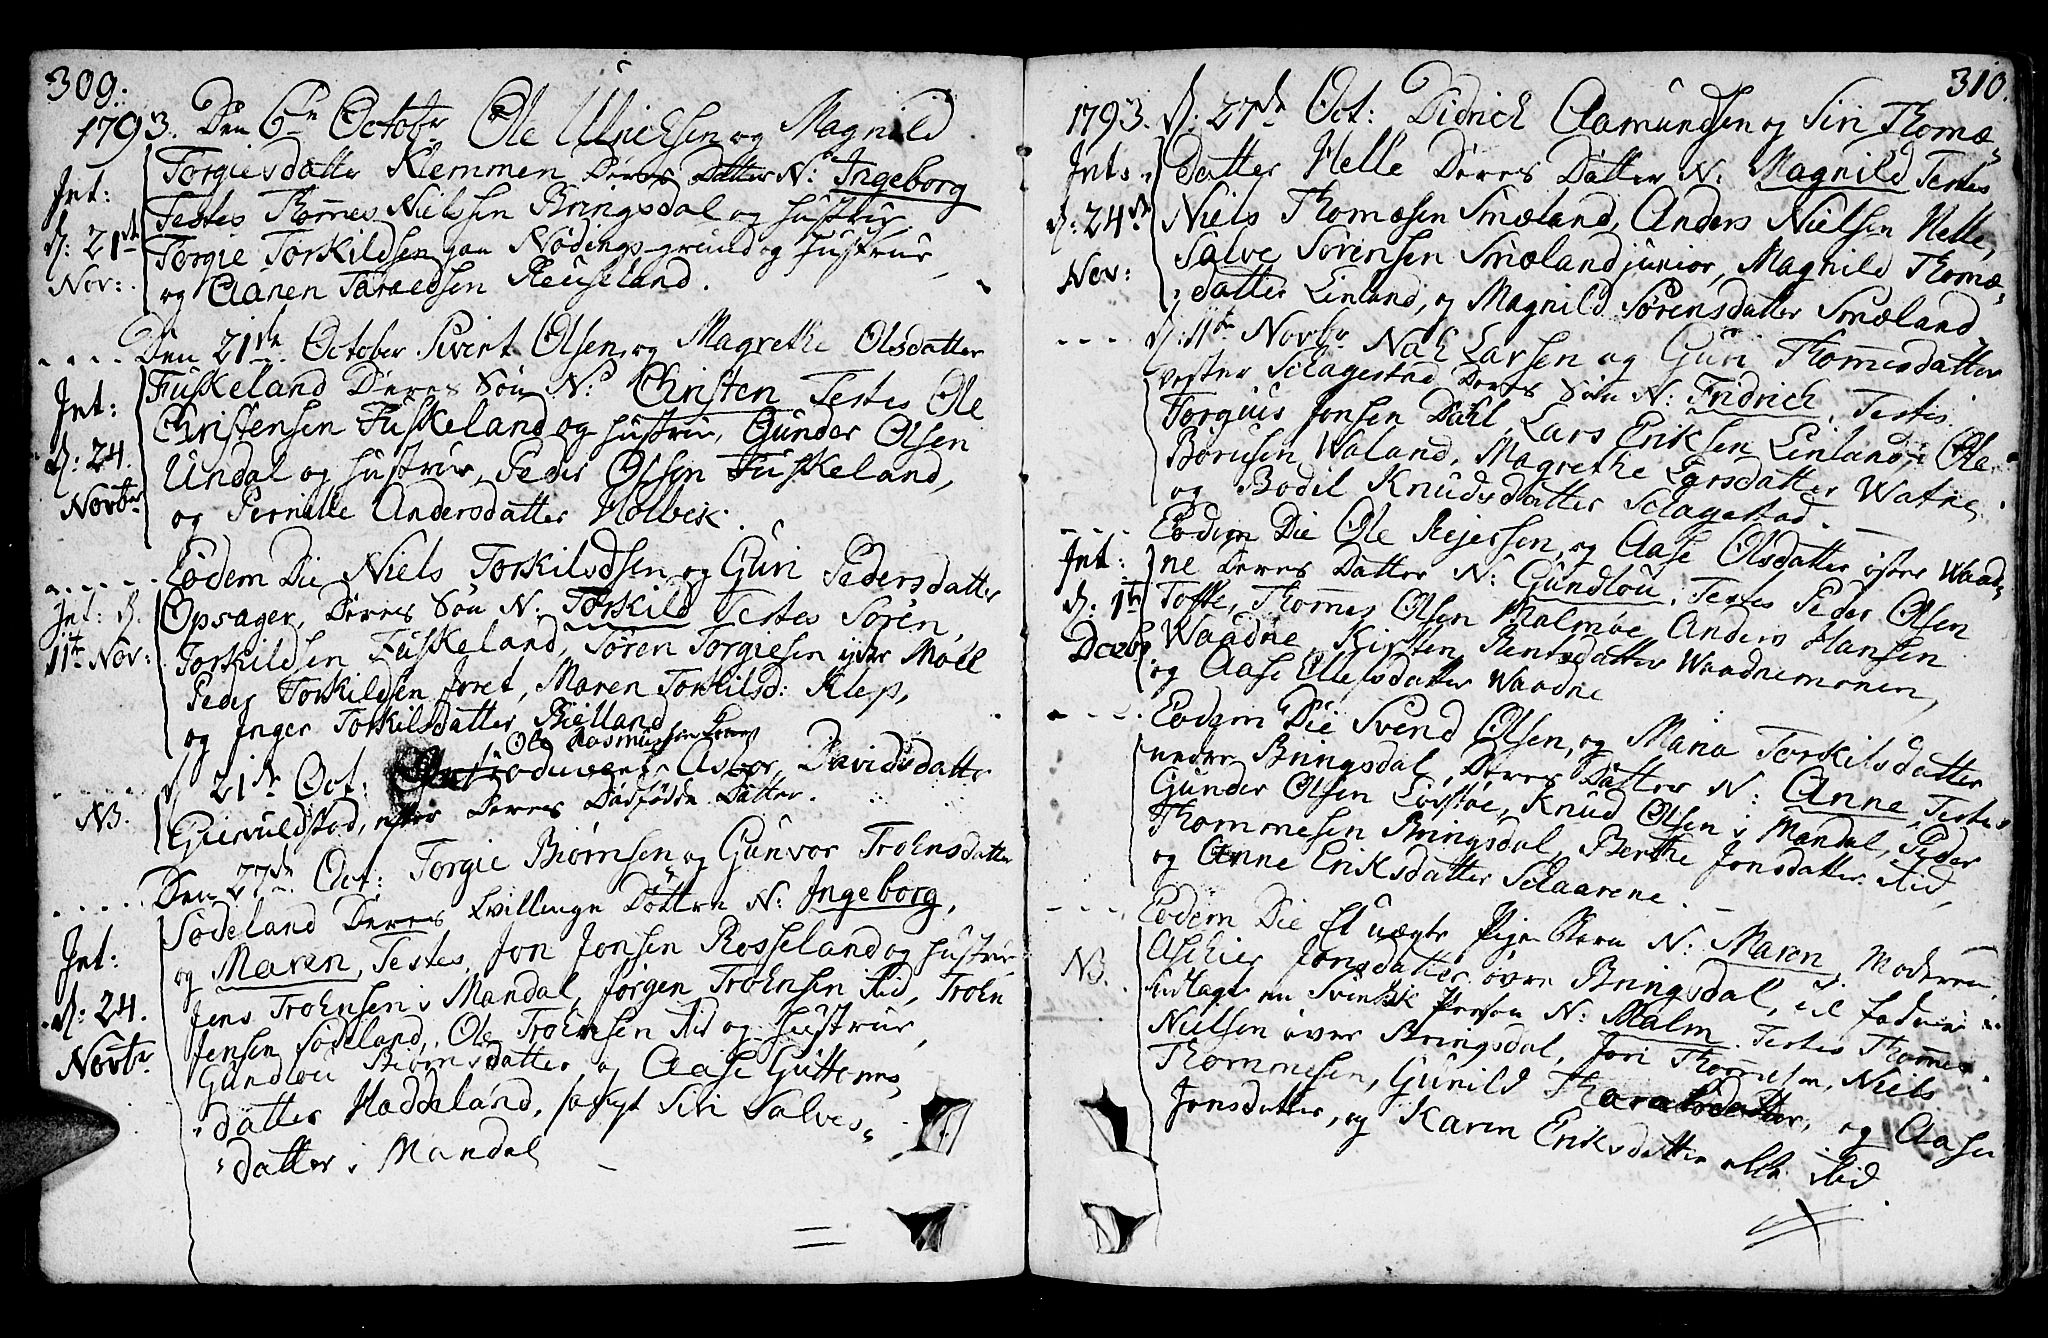 309.
1793. Den 6te October Ole Ulrichsen og Magnild
Torgiesdatter Klemmen Deres Datter N: Ingeborg
Testes Thomes Nielsen Bringsdal og Hustrue
Torgie Torkildsen paa Nødings-grund og Hustrue,
og Aanen Taraldsen Reuseland.
Int:
d: 21de
Nov:
Den 21de October Svert Olsen, og Magrethe Olsdatter
Fuskeland Deres Søn N: Christen Testes Ole
Christensen Fuskeland og Hustrue, Gunder Olsen
Undal og Hustrue, Peder Olsen Fuskeland,
og Pernille Andersdatter Holbek.
Int:
d: 24.
Novbr
Eodem Die Niels Torkildsen og Guri Pedersdatter
Opsager, Deres Søn N: Torkild Testes Søren
Torkildsen Fuskeland, Søren Torgiesen ydre Møll
Peder Torkildsen Foret, Maren Torkilsd: Klep,
og Inger Torkilsdatter Bielland
Int: d.
11te Nov:
Ole Rasmussen
d 21de Oct: Introduceret Asbor Davidsdatter
Giervuldstad, efter Deres Dødfødde Datter.
NB.
Den 27de Oct: Torgie Biørnsen og Gunvor Troensdatter
Sødeland Deres tvillinge Døttre N: Ingeborg,
og Maren, Testes, Jon Jonsen Rosseland og Hustrue
Jens Troensen i Mandal, Jørgen Troensen ibid, Troen
Jensen Sødeland, Ole Troensen ibid og Hustrue,
Gundlou Biørnsdatter, og Aase Guttorms-
datter Haddeland, samt Siri Salves-
datter i Mandal
Int:
d: 24.
Novbr
310.
1793. d: 27de Oct: Didrich Aamundsen og Siri Thomæ-
datter Helle Deres Datter N: Magnild Testes
Niels Thomæsen Smæland, Anders Nielsen Helle,
Salve Sørensen Smæland junior, Magnild Thomæ-
datter Lenland, og Magnild Sørensdatter Smæland
Int:
d: 24de
Nov:
d: 11te Novbr Nah Larsen og Guri Thomesdatter
vester Sclagestad Deres Søn N: Fridrich, Testes
Torgius Jonsen Dahl, Lars Eriksen Lenland, Ole
Borusen Waland, Magrethe Larsdatter Watne
og Bodil Knudsdatter Sclagestad.
Eodem Die Ole Rejersen, og Aase Olsdatter øster Waad-
ne Deres Datter N: Gundlou, Testes Peder Olsen
Tofte, Thomes Olsen Malmøe Anders Hansen
Waadne, Kirsten Rentsdatter Waadnemonen,
og Aase Ellefsdatter Waadne
Int:
d: 1te
Decbr
Eodem Die Svend Olsen, og Maria Torkilsdatter
nedre Bringsdal, Deres Datter N: Anne, Testes
Gunder Olsen Løvstøe, Knud Olsen i Mandal, Peder
Thommesen Bringsdal, Berthe Jonsdatter ibid,
og Anne Eriksdatter Sclaarene.
Eodem Die Et uægte Pige Barn N: Maren, Moderen
Aschier Jonsdatter øvre Bringsdal,
udlagt en Svensk Person N: Malm. Testes Thommes
Nielsen øvre Bringsdal, Jori Thomesen, Niels
Thommesen, Gunild Tharaldsdatter, og Aase
Jonsdatter, og Karen Eriksdatter alle ibid.
NB.